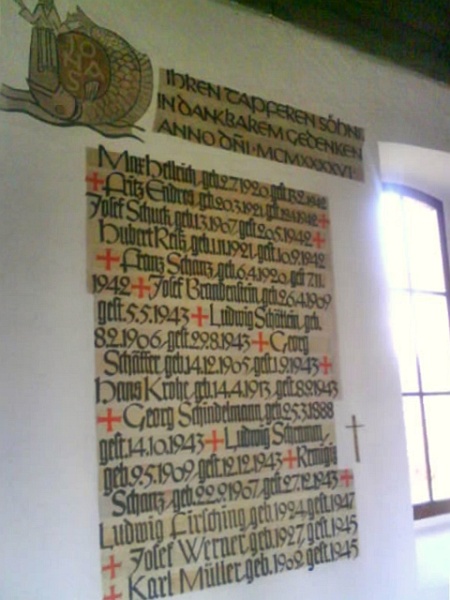 JONAS
IHREN TAPFEREN SÖHNEN
IN DANKBAREM GEDENKEN
ANNO DÑI · MCMXXXXVI ·
Max Hellrich, geb. 2.7.1920, gest. 13.2.1942
+ Fritz Endres, geb. 20.3.1921, gest.
Josef Schuck, geb. gest. 20.5.1942 +
Hubert geb. 1.11.1921, gest. 10.9.1942
+ Franz Schanz, geb. 6.4.1920, gest. 7.11.
1942 + Josef Brandenstein, geb. 26.4.1909
gest. 5.5.1943 + Ludwig geb.
8.2.1906, gest. 29.8.1943 + Georg
Schäffer, geb. 14.12.1905, gest. 1.9.1943 +
Hans Krohe, geb. 14.4.1913, gest. 8.9.1943
+ Georg Schindelmann, geb. 25.3.1888
gest. 14.10.1943 + Ludwig
geb. 9.5.1909, gest. 12.12.1943 + Remigius
Schanz, geb. gest. 27.12.1943 +
Ludwig Firsching, geb. 1924, gest. 1947
+ Josef Werner, geb. 1927, gest. 1945
+ Karl Müller, geb. 1902, gest. 1945